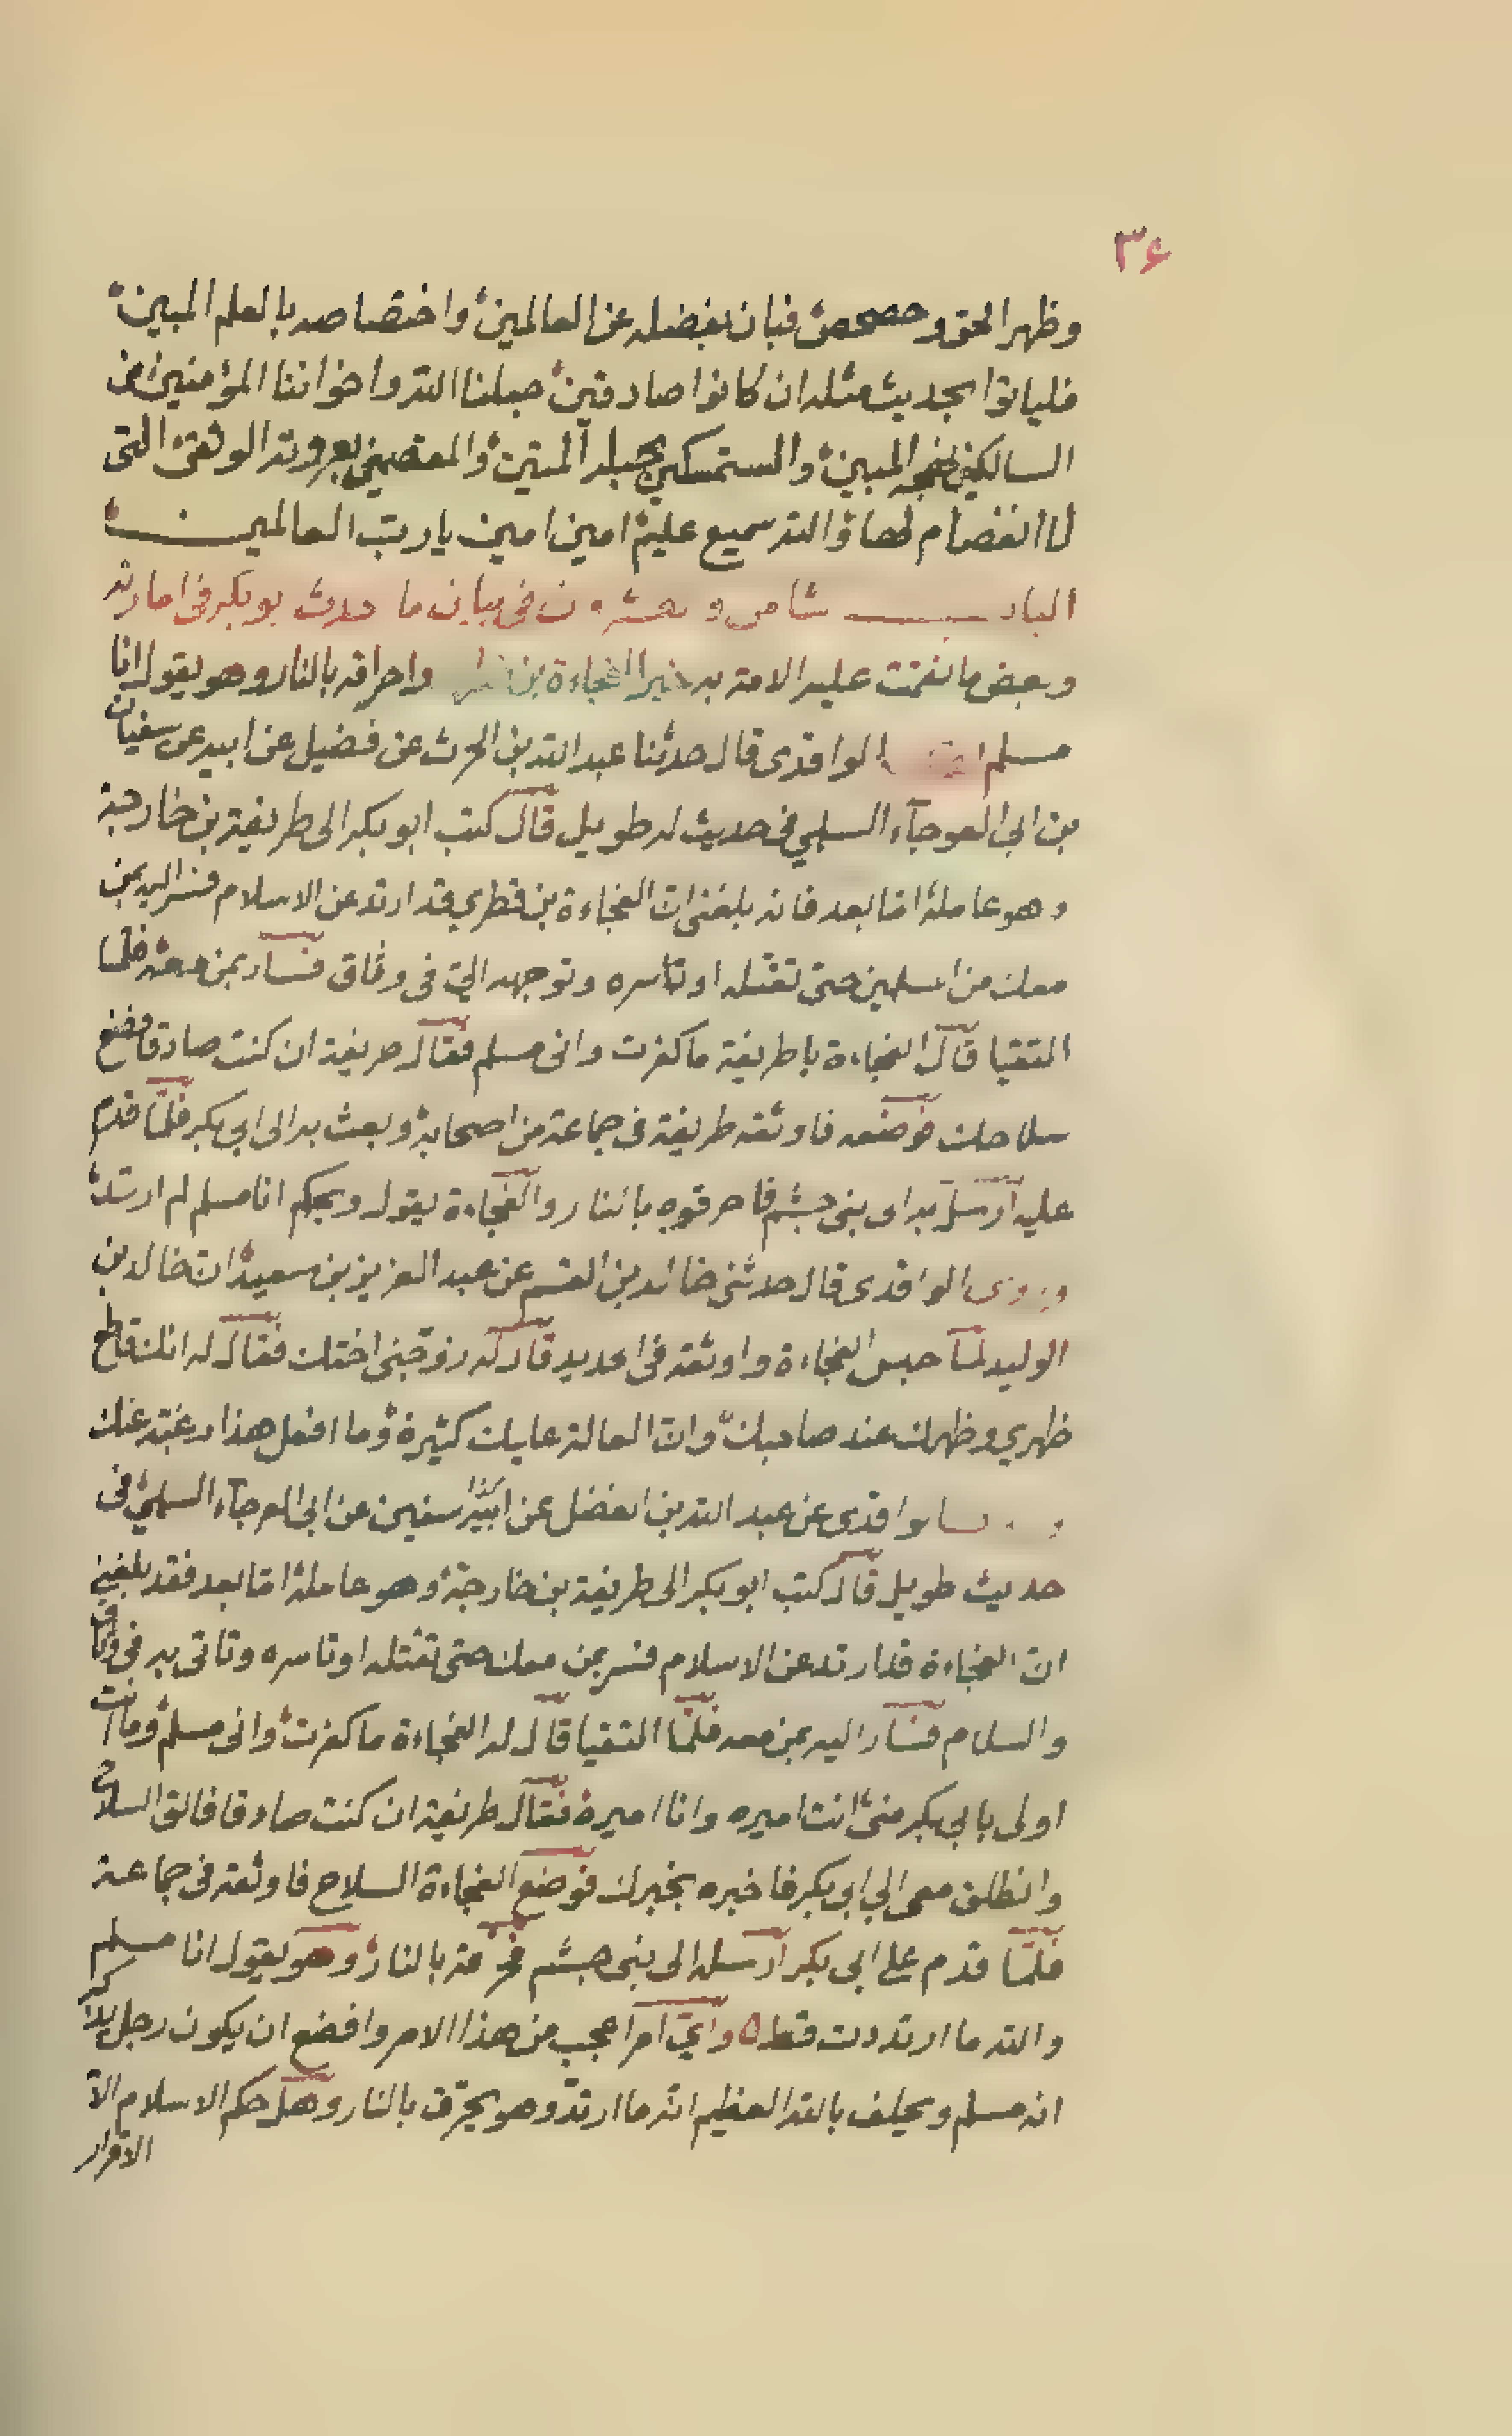 ٣٤
وظهر الحق وحصحص فبان بفضله عن العالمين واختصاصه بالعلم المبين
فلياتوا بحديث مثله ان كانوا صادقين جعلنا الله واخواننا المؤمنين من
السالكين لنهجه المبين والمستمسكين بحبله المتين والمعتصمين بعروته الوثقى التى
لا انفصام لها والله سميع عليم امين امين يا رب العالمين
الباب ثامن و عشرون فى بيان ما حدث بوبكر فى امارته
وبعض ما نقمت عليه الامة به خبر الفجاءة بن واحراقه بالنار وهو يقول انا
مسلم الواقدى قال حدثنا عبد الله بن الحرث عن فضيل عن ابيه عن سفيان
بن ابى العوجآء السلمي فى حديث له طويل قال كتب ابو بكر الى طريفة بن خارجة
وهو عامله امّا بعد فانه بلغنى ان الفجاءة بن قطري قد ارتد عن الاسلام فسر اليه بمن
معك من المسلمين حتى تقتله او تأسره وتوجهه الىّ فى وثاق فسار بمن معه فلما
التقيا قال الفجاءة يا طريفة ما كفرت وانى مسلم فقال طريفة ان كنت صادقا فضع
سلاحك فوضعه فاوثقه طريفة فى جماعة من اصحابه وبعث به الى ابى بكر فلمّا قدم
عليه ارسل به الى بنى جشم فاحرقوه بالنار والفجاءة يقول ويحكم انا مسلم لم ارتد
وروى الواقدى قال حدثنى خالد بن القسم عن عبد العزيز بن سعيد ان خالد بن
الوليد لما حبس الفجاءة واوثقه فى الحديد قال له زوّجنى اختك فقال له انك قاطع
ظهري وظهرك عند صاحبك وان القالة عليك كثيرة وما افعل هذا رغبة عنك
الواقدى عن عبد الله بن الفضل عن ابيه سفين عن ابى العوجآء السلمي فى
حديث طويل قال كتب ابو بكر الى طريفة بن خارجة وهو عامله امّا بعد فقد بلغنى
ان الفجاءة قد ارتد عن الاسلام فسر بمن معك حتى تقتله او تاسره وتاتى به فى وثاق
والسلام فسار اليه بمن معه فلمّا التقيا قال له الفجاءة ما كفرت وانى مسلم وما انت
اولى بابى بكر منى انت اميره وانا اميره فقال طريفة ان كنت صادقا فالق السلاح
وانطلق معى الى ابى بكر فاخبره بخبرك فوضع الفجاءة السلاح فاوثقه فى جماعة
فلمّا قدم على ابى بكر ارسله الى بنى جشم فحرقه بالنار وهو يقول انا مسلم
والله ما ارتددت قط ه واىّ امر اعجب من هذا الامر وافضع ان يكون رجل يذكر
انه مسلم ويحلف بالله العظيم انه ما ارتدّ وهو يحرّق بالنار وهل حكم الاسلام الا
الاقرار